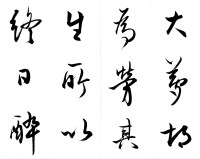 大夢胡
為勞其
生所以
終日醉